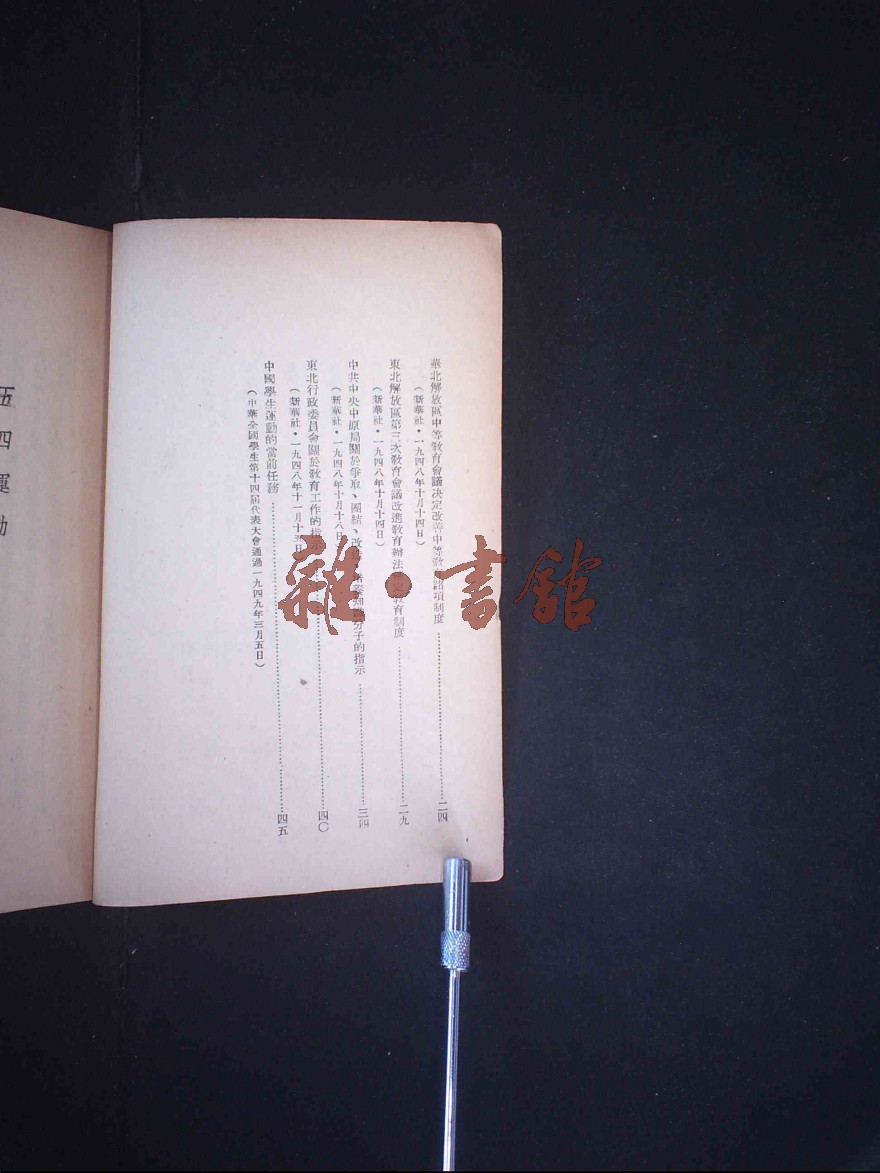 華北解放區中等教育會議決定改善中等教諸項制度……二四
（新華社・一九四八年十月十四日）
東北解放區第三次教育會議改進教育辦法教育制度……二九
（新華社・一九四八年十月十四日）
中共中央中原局關於爭取、團結、改分子的指示……三四
（新華社・一九四八年十月十八日
東北行政委員會關於教育工作的指示……四〇
（新華社・一九四八年十一月十日
中國學生運動的當前任務……四五
（中華全國學生第十四屆代表大會通過一九四九年三月五日）
五四運動
雜・書館